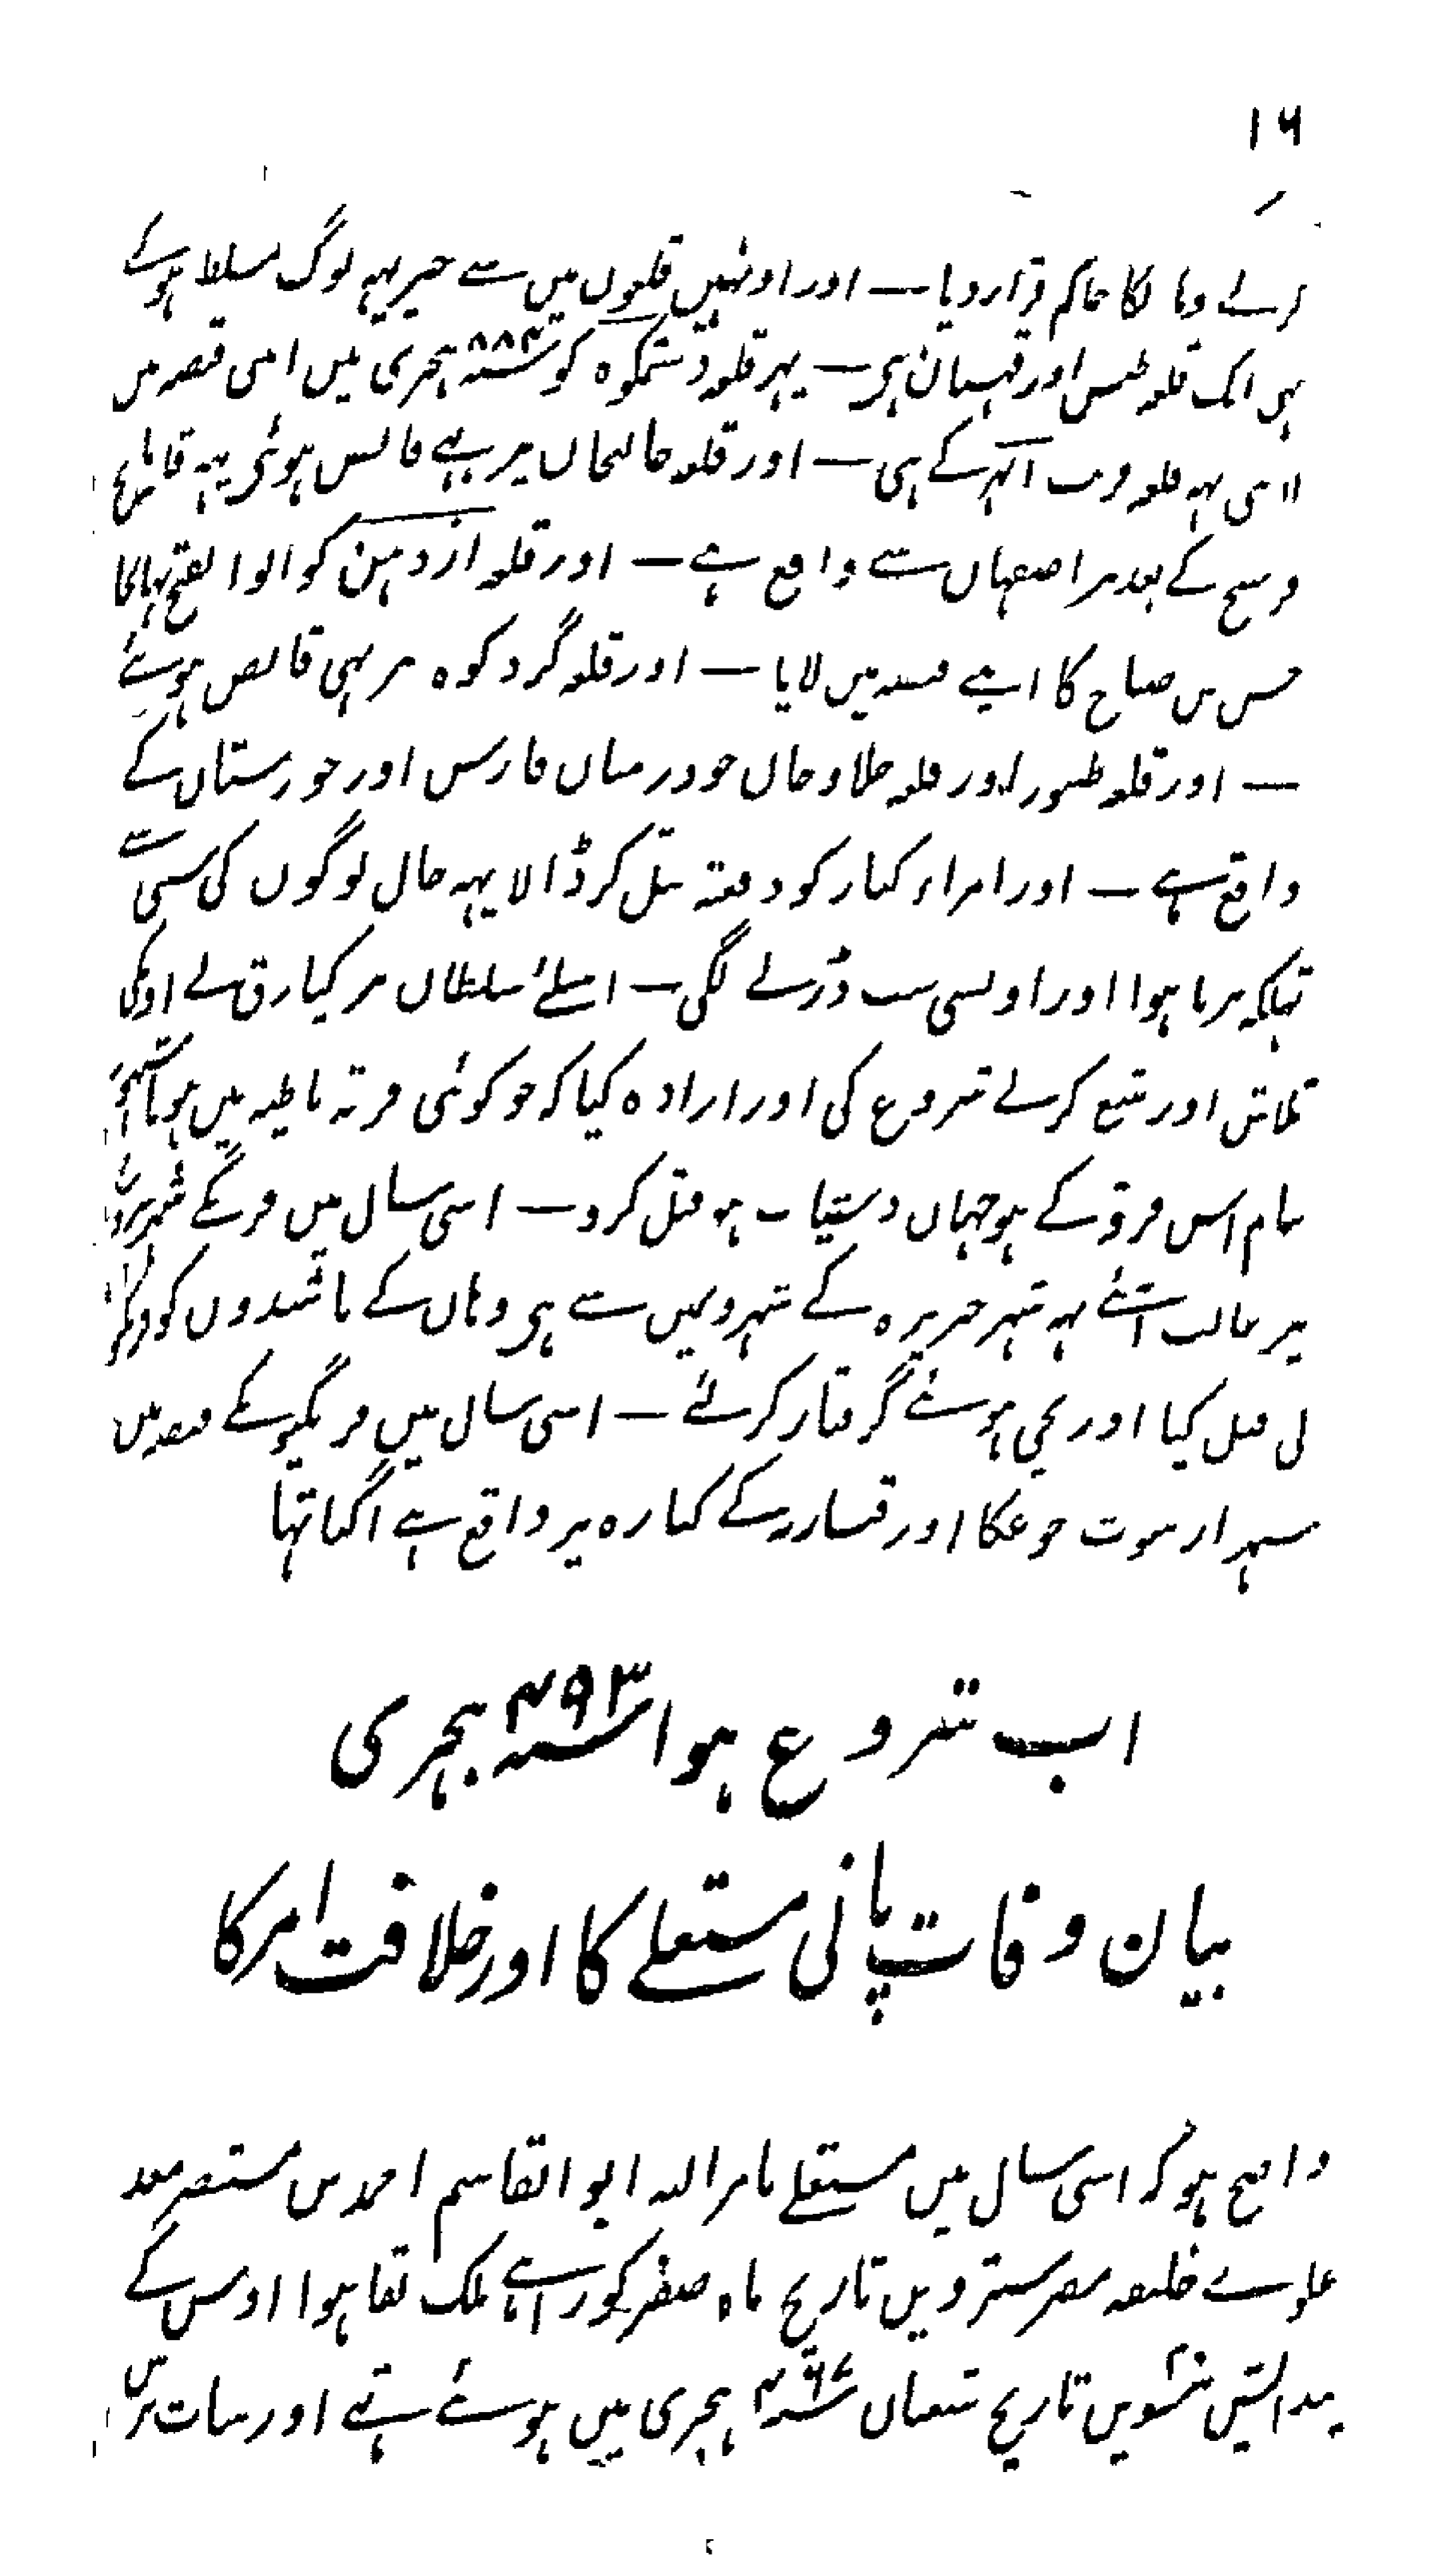 ۱۶
کرلے وہا لکا حاکم قرار دیا — اور اونہیں قلعوں میں سے جیر یہہ لوگ مسلط ہوے
ہی ایک قلعہ طبس اور قہستان ہی — یہر قلعہ دستمکوہ کو سنہ ہجری میں اسی قصہ میں
لائی یہہ قلعہ قریب آبہر کے ہی — اور قلعہ خالنجاں پر بہی قابض ہوئی یہہ قلعہ پانچ
فرسخ کے بعد پر اصفہاں سے واقع ہے — اور قلعہ ازدہن کو ابوالفتح بہانجا
حسن بن صباح کا اپنے قبضہ میں لایا — اور قلعہ گردکوہ پر بہی قابض ہوئے
— اور قلعہ طنبور اور قلعہ خلاوخاں جو درمیاں فارس اور خوزستاں کے
واقع ہے — اور امراء کبار کو دفعتہ قتل کر ڈالا یہہ حال لوگوں کی سی سے
تہلکہ برپا ہوا اور اونسی سب ڈرنے لگی — اسلئے سلطاں برکیارق نے اونکی
تلاش اور تتبع کرنے شروع کی اور ارادہ کیا کہ جو کوئی فرقہ باطنیہ میں ہو یا
بنام اس فرقہ کے ہو جہاں دستیاب ہو قتل کرو — اسی سال میں فرنگے شہر سروج
پر غالب آئے یہہ شہر جزیرہ کے شہرونمیں سے ہی وہاں کے باشندوں کو
لی قتل کیا اور بچی ہوئے گرفتار کرلئے — اسی سال میں فرنگیوں کے قبضہ میں
شہر ارسوف جو عکا اور قیساریہ کے کنارہ پر واقع ہے آگیا تہا
اب شروع ہوا سنہ ۴۹۳ ہجری
بیان وفات پانی مستعلے کا اور خلافت امر کا
واضح ہو کہ اسی سال میں مستعلے بامر اللہ ابو القاسم احمد بن مستنصر معد
علوے خلیفہ مصر سترویں تاریخ ماہ صفر کو راہئے ملک بقا ہوا اوس کے
پیدائیش بیسویں تاریخ شعباں سنہ ۴۶۷ ہجری میں ہوئے تہے اور سات برس